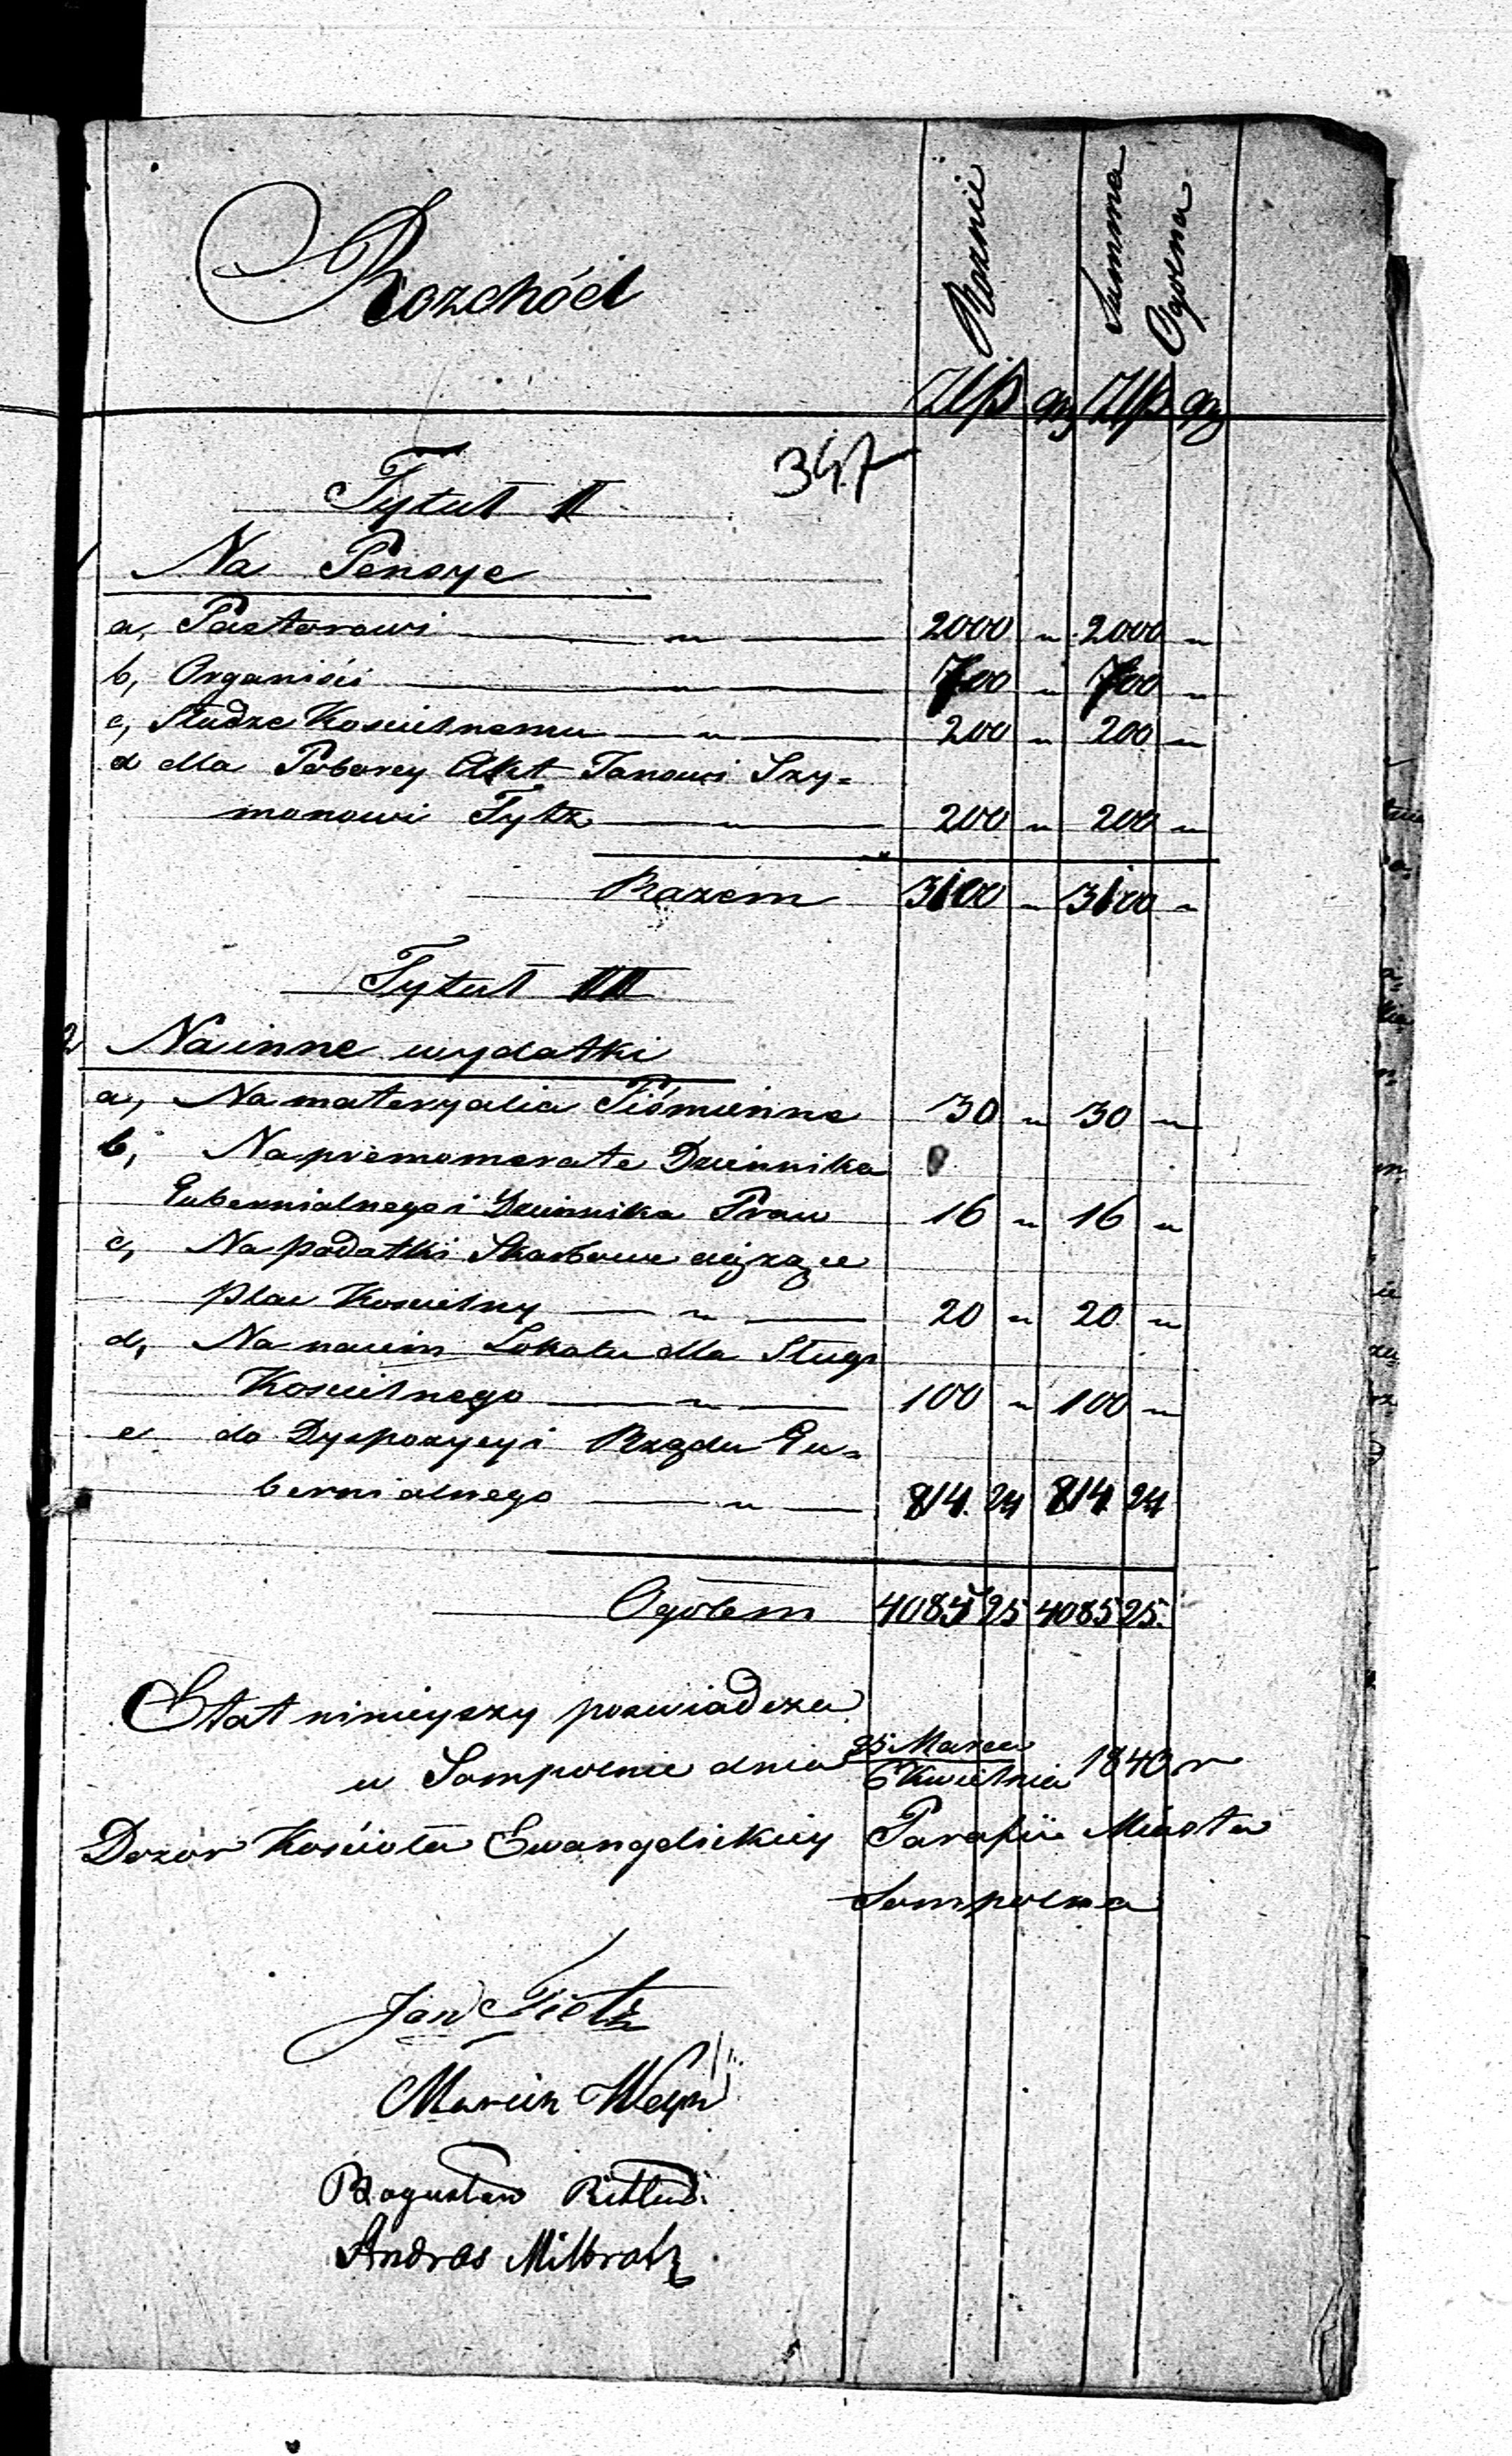 Rozchód
Rocznie
Summa
Ogólna
Złp gr Złp gr
347
Tytuł II
1 Na Pensye
a, Pastorowi 2000 " 2000 "
b, Organiści 700 " 700 "
c, Słudze Kościelnemu " 200 " 200 "
d dla Poborcy Akt Janowi Szy=
monowi Tytz 200 " 200 "
Razem 3100 " 3100 "
Tytuł III
2 Na inne wydatki
a, Na materyalia Piśmienne 30 " 30 "
b, Na premomerate Dziennika
Gubernialnego i Dziennika Praw 16 " 16 "
c, Na podatki Skarbowe ciążące
plac Kościelny " 20 " 20 "
d, Na naiem Lokalu dla Sługi
Kościelnego " 100 " 100 "
e do Dyspozycyi Rządu Gu=
bernialnego " 814. 24 814 24
Ogółem 4085 25 4085 25.
Etat ninieyszy poswiadcza
w Sompolnie dnia 25 Marca
6 Kwietnia 1843 r
Dozór Kościoła Ewangelickiey Parafii Miasta
Sompolna
Jan Tietz
Marcin
Bogusław
Andras Milbratz